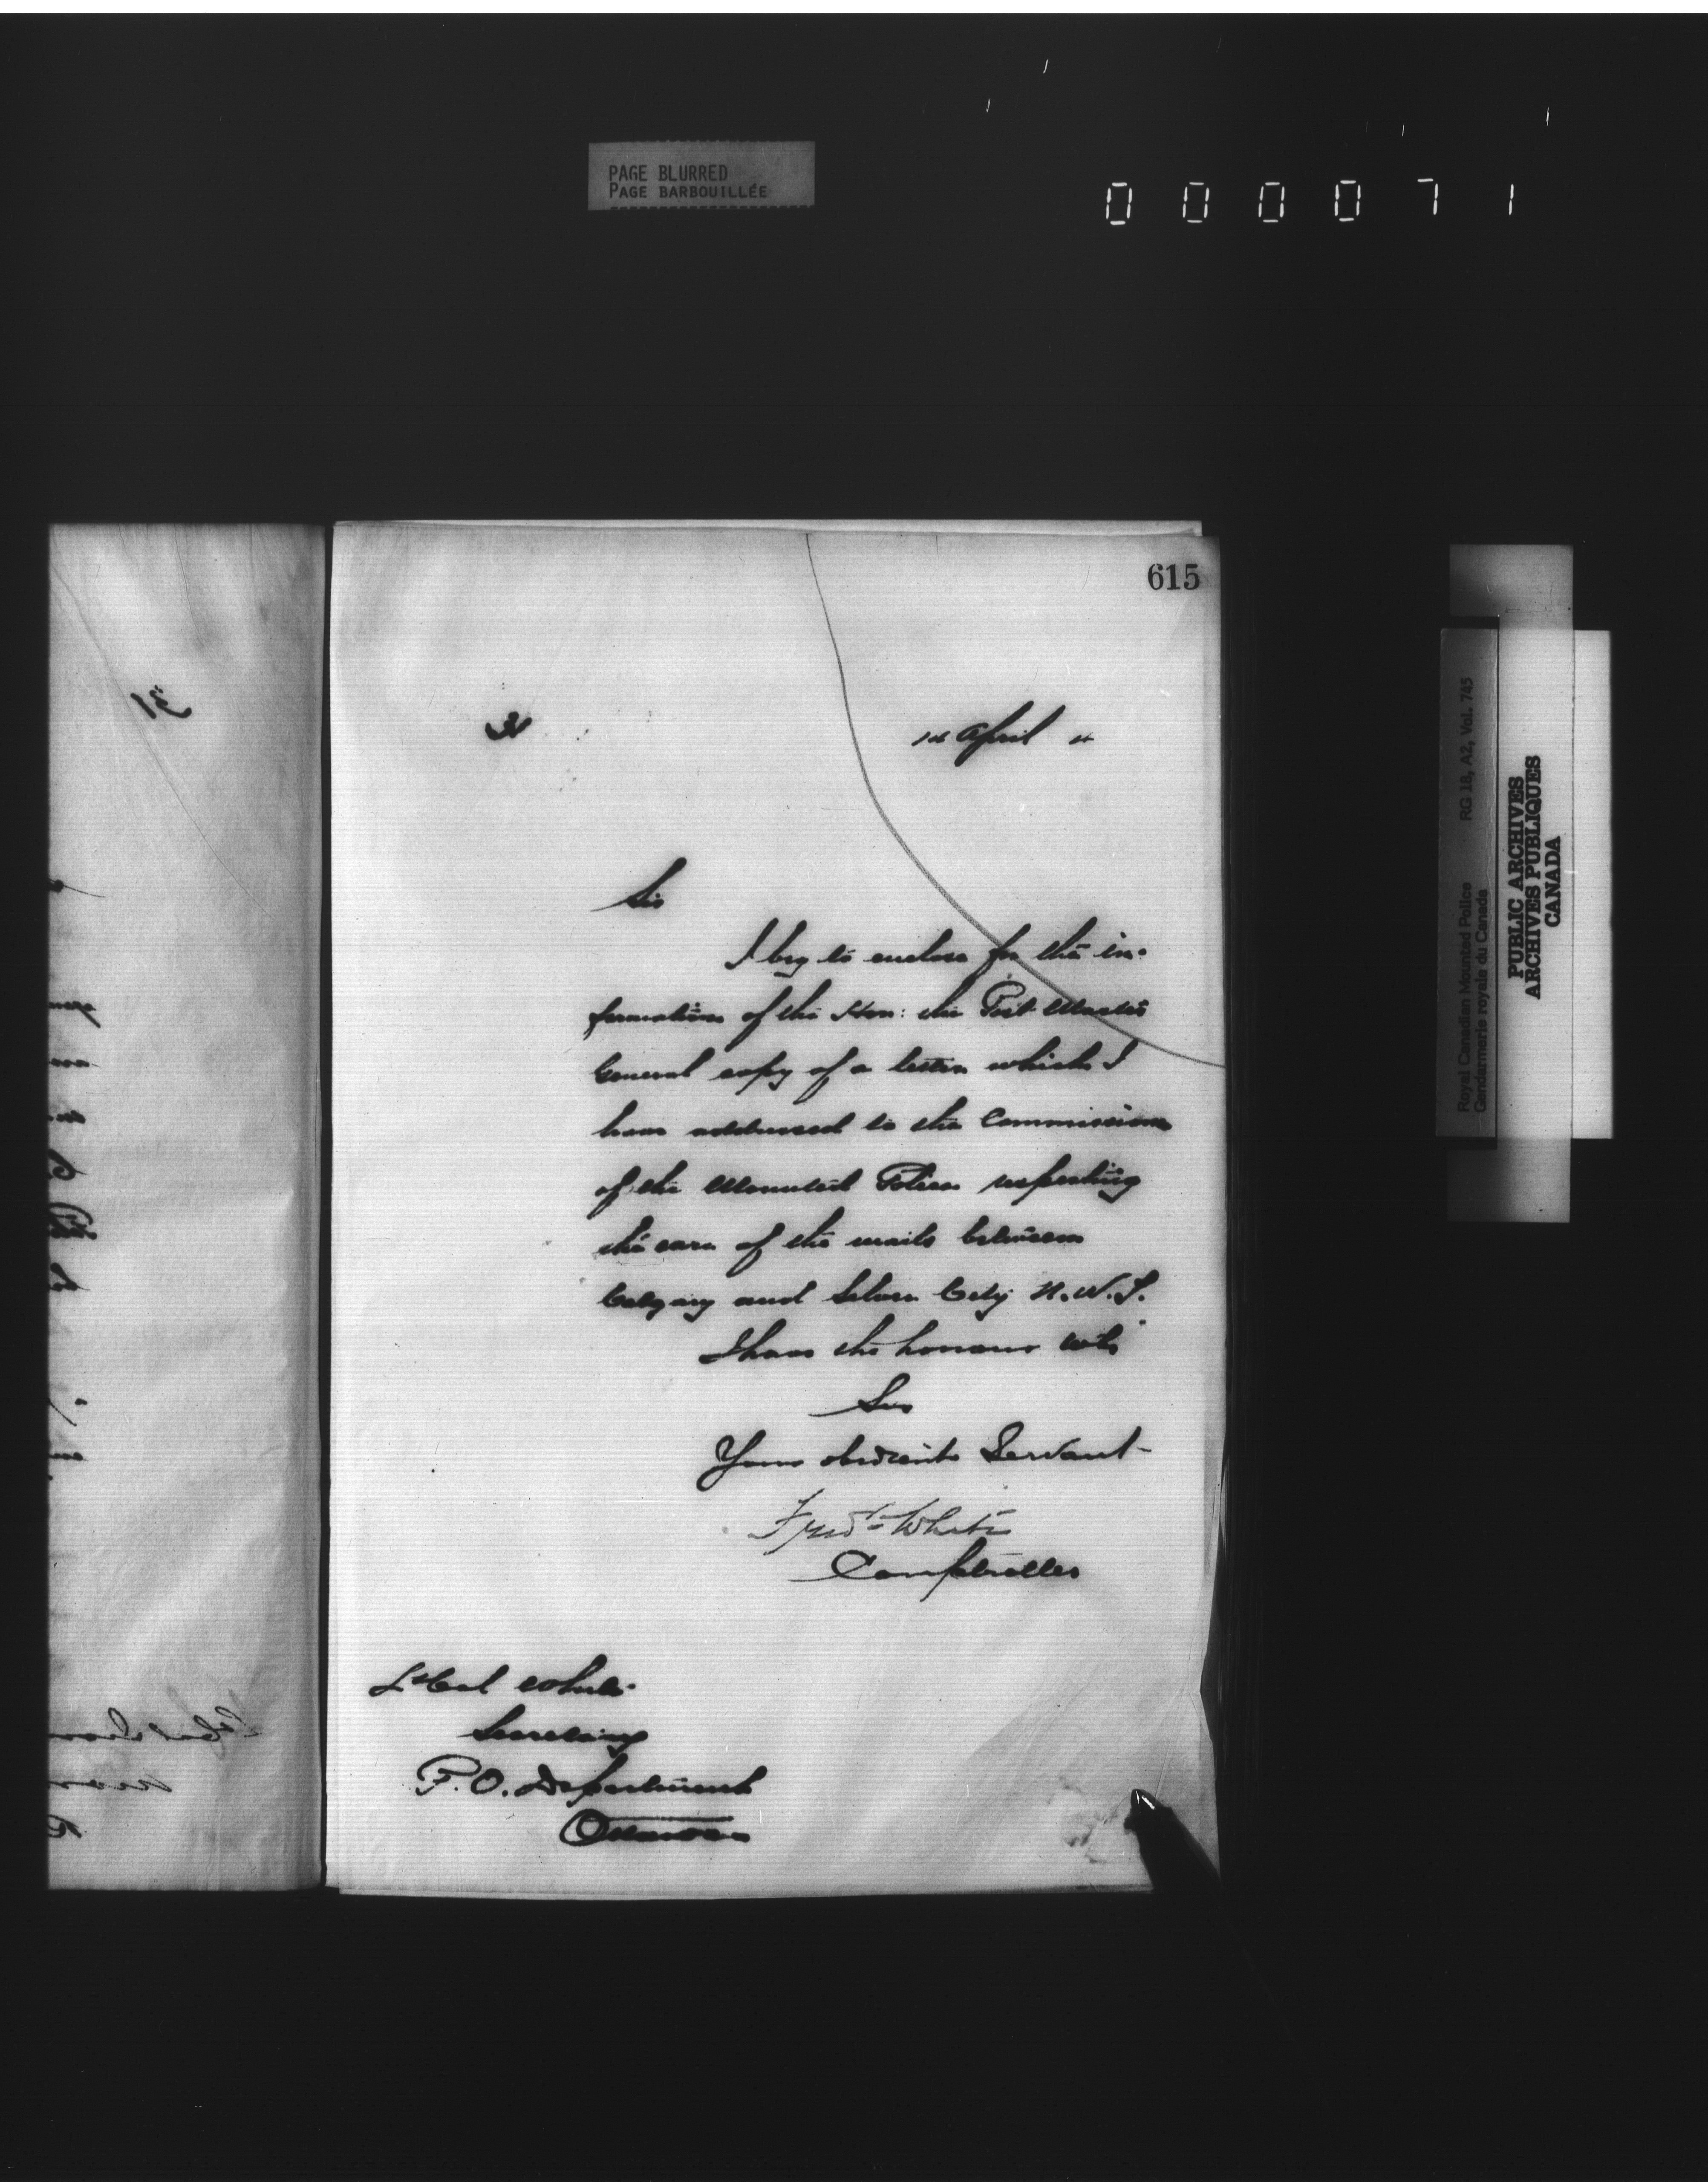 PAGE BLURRED
PAGE BARBOUILLÉE
000071
615
31
1st April
Sir
I beg to enclose for the in-
formation of the Hon: the Post Master
General copy of a letter which I
have addressed to the Commissioner
of the Mounted Police respecting
the care of the mails between
Calgary and Silver City N.W.T.
I have the honour to be
Sir
Your obedient Servant
Fred White
Comptroller
Lt Col White
Secretary
P.O. Department
Ottawa
Royal Canadian Mounted Police RG 18, A2, Vol. 745
Gendarmerie royale du Canada
PUBLIC ARCHIVES
ARCHIVES PUBLIQUES
CANADA